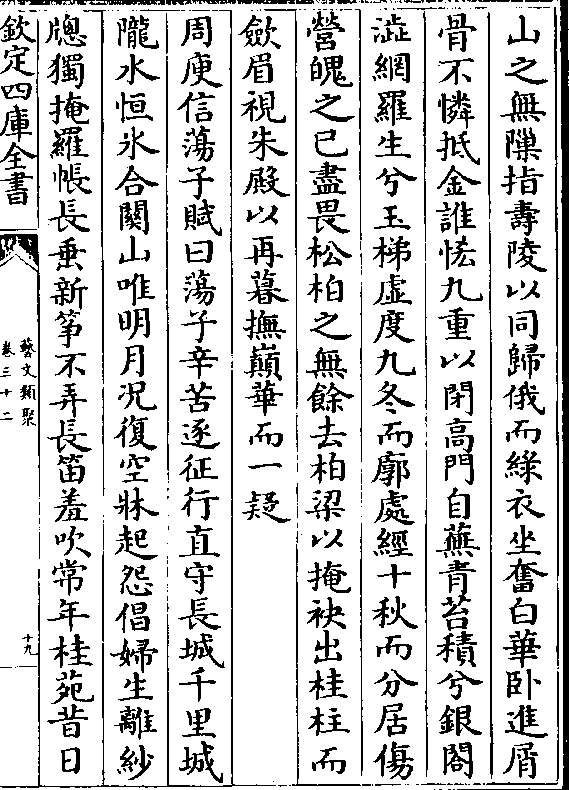 山之無隟指壽陵以同歸俄而綠衣坐奮白華卧進屑
骨不憐抵金誰恡九重以閉高門自蕪青苔積兮銀閣
澁網羅生兮玉梯虛度九冬而廓處經十秋而分居傷
營魄之已盡畏松柏之無餘去柏梁以掩袂出桂柱而
歛眉視朱殿以再暮撫巔華而一疑
周庾信蕩子賦曰蕩子辛苦逐征行直守長城千里城
隴水恒氷合關山唯明月况復空牀起怨倡婦生離紗
牕獨掩羅帳長垂新筝不弄長笛羞吹常年桂苑昔日
欽定四庫全書
藝文類聚
卷三十二
十九